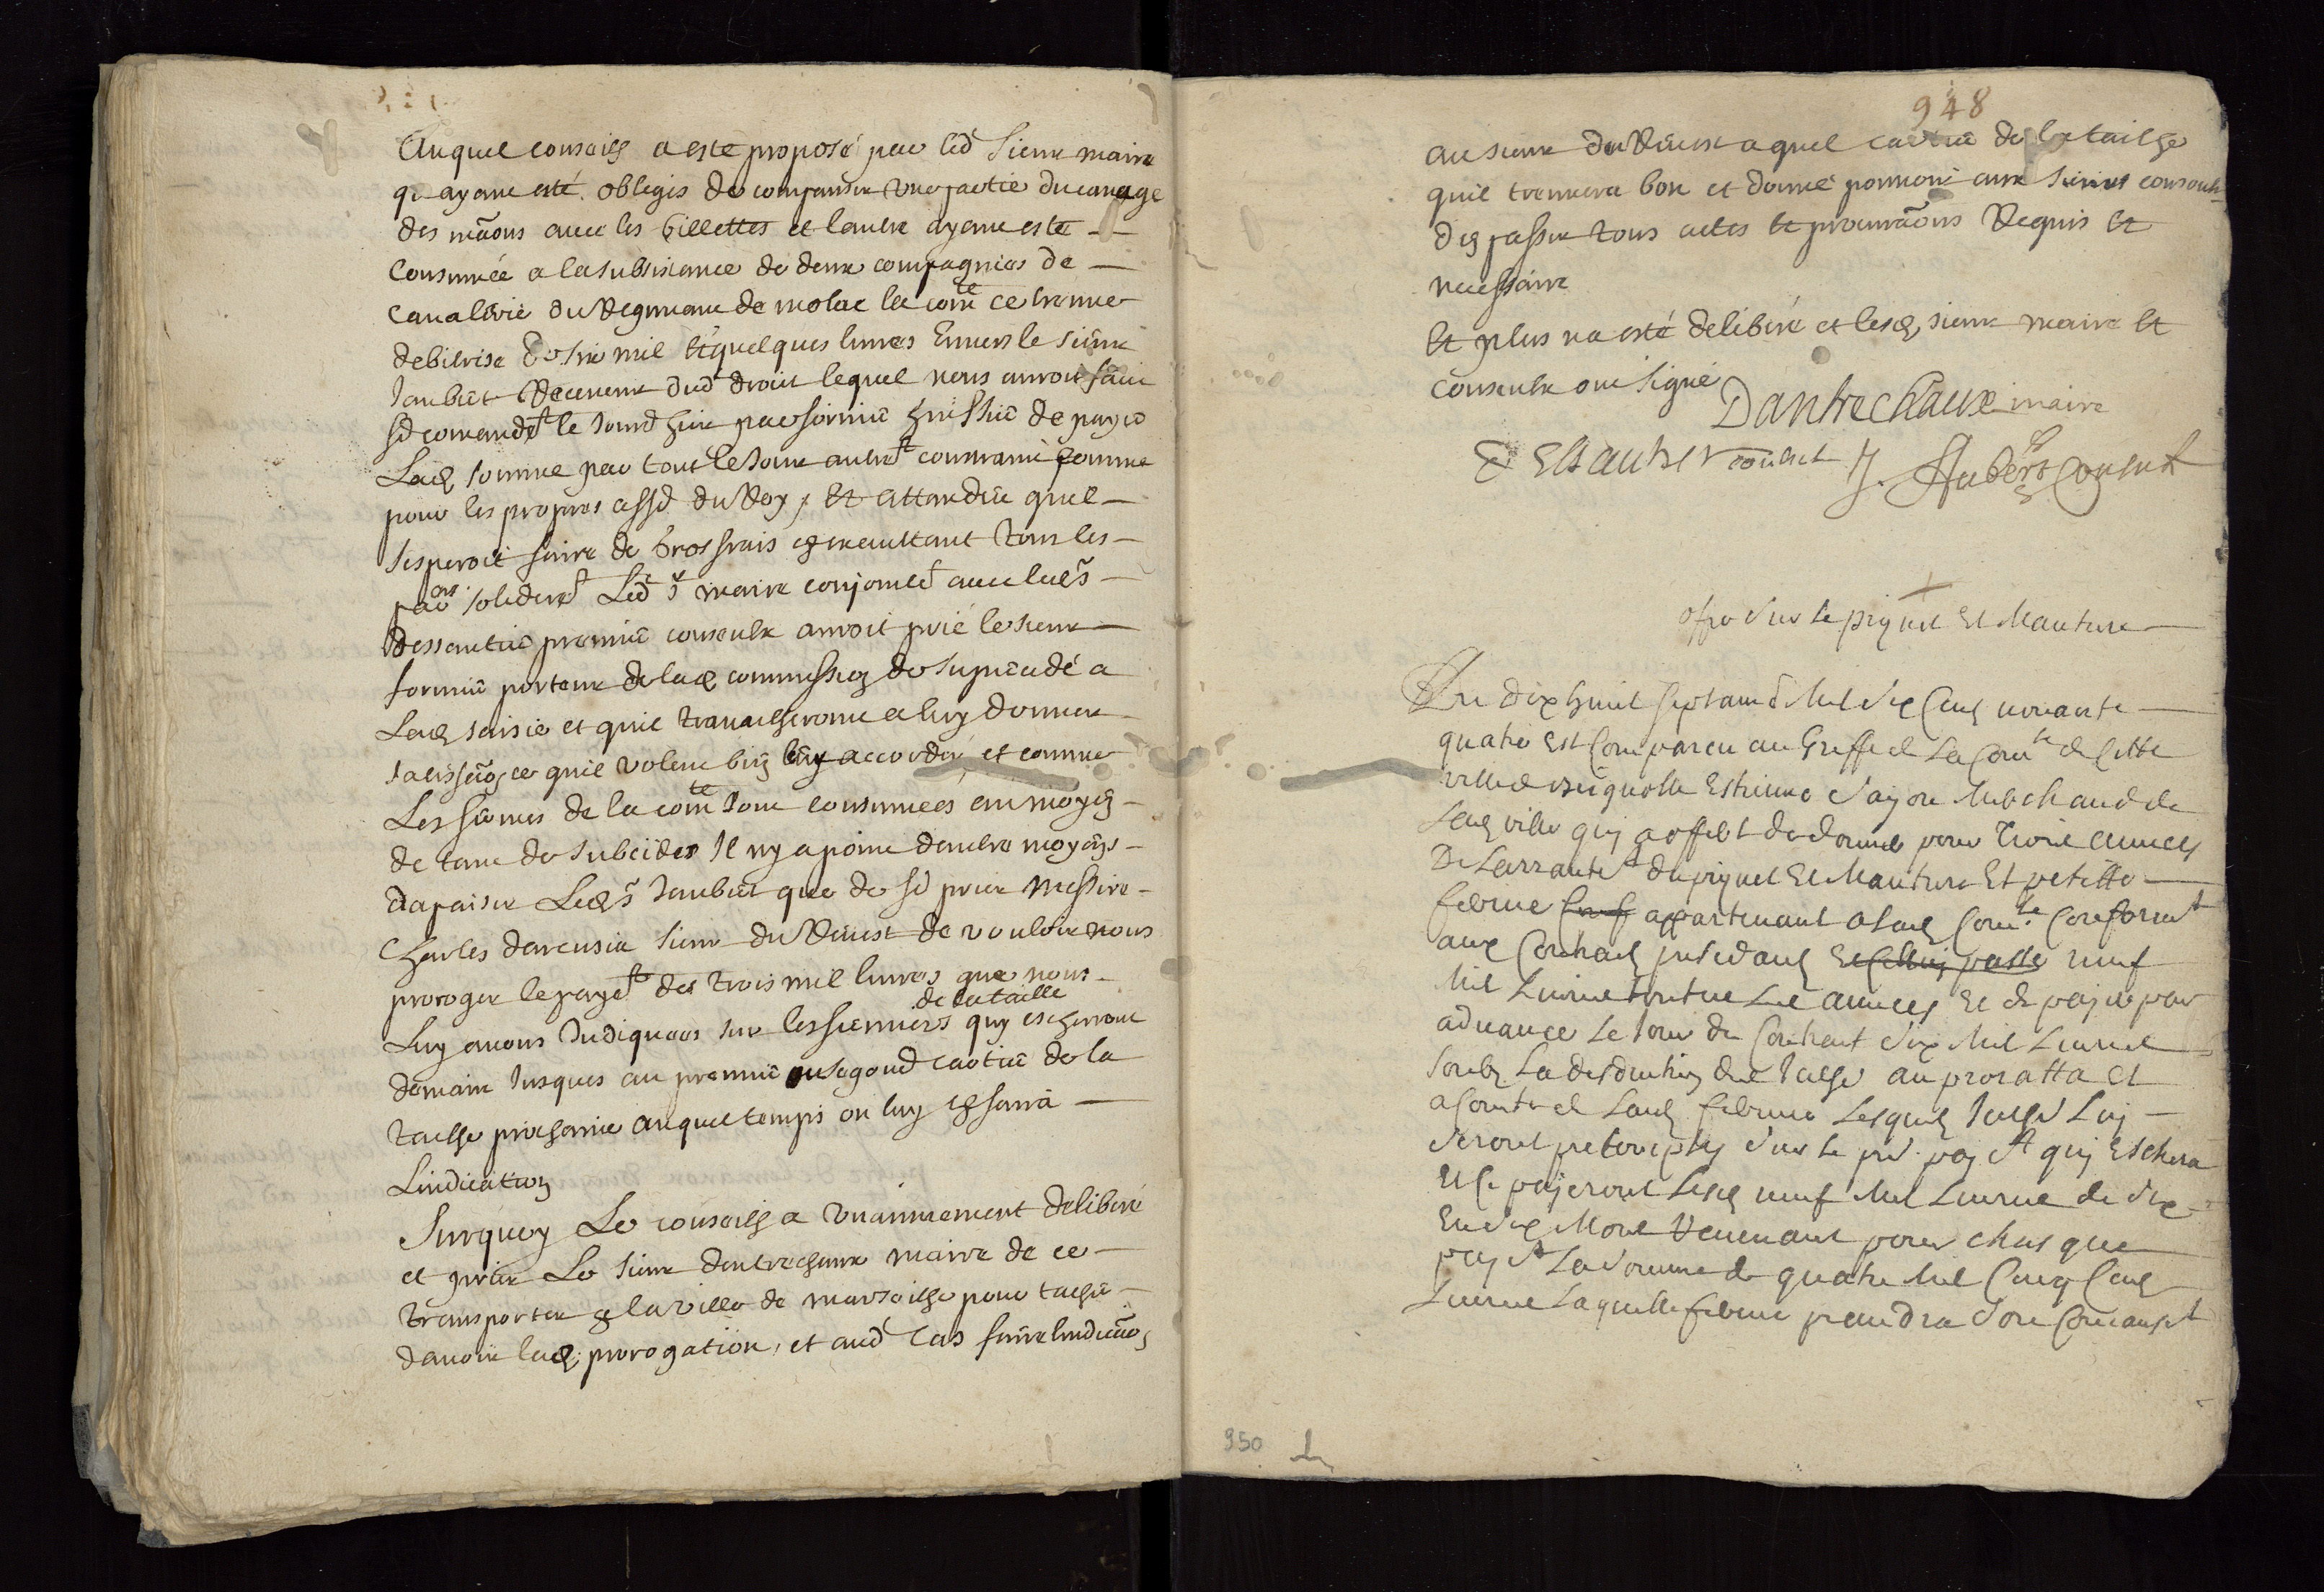 Auquel conseilh a esté proposé par led sieur maire
qu ayant esté obligés de compenser une partie du cavage
des mãons avec les billettes et lautre ayant esté
consumée a la subsistance de deux compagnies de
cavalerie du Regiment de molac la com.te ce treuve
debitrise de six mil et quelques livres Envers le sieur
Jaubert Receveur dud droit lequel nous auroit faict
comandt le jourd huy par formié huissié de payé
Lad somme par tout le jour autremt contraint comme
pour les propres aff.d du Roy, Et attandu quil
sesperoit faire de gros frais en executtant tous les
solidert Led sr maire conjointt avec led sr
dessautié premié consulx auroit prié le sieur
formié porteur de lad commission de supercedé a
Lad saisie et quil travailheront a luy donner
satisfaõn ce quil volut bien luy accorder, et comme
Les fermes de la com.te sont consumées au moyen
de tant de subcides Il ny a point dautre moyens
dapaiser Led sr Jaubert que de prier Messire
Charles darcusia sieur du Revest de vouloir nous
proroger le payet des trois mil livres que nous
Luy avons Indiquees sur les fermiers de la taille quy escherront
demain jusques au premié ou segond cartié de la
tailhe prochaine auquel temps on luy en faira
Lindication
Surquoy Le conseilh a unanimement deliberé
et prier Le sieur dantrechaux maire de ce
transporter a la ville de marseilhe pour taché
davoir lad prorogation, et aud cas faire lindicaõn
948
au sieur du Revest a quel cartié de la tailhe
quil treuvera bon et donné pouvoir aux sieurs consouls
den passer tous actes et procuraõns Requis et
necessaire
Et plus na esté deliberé et lesd sieur maire et
consulx ont signé
DantreChaux maire
D Essautier consul J. Aubert Consul
ofre sur le piquet Et Mauture
Du dix huit septamb Mil six Cens nonante
quatre Est Compareu au Greffe de La Com.te de Cette
ville de Estienne Marchand de
Lad ville quy a offert de donner pour trois années
De Larrantet du piquet Et Mauture Et petitte
ferme appartenant a lad Com.te Conformt
aux Contracs presedans neuf
Mil Livres toutes Les années Et de payer par
advance Le jour du Contract six Mil Livres
soubz La desduction du au proratta Et
a Conte de Lad ferme Lesquels Luy
seront sur le pr payet quy Eschera
Et Ce payeront Lesd neuf Mil Livres de six
En six Mois Revenant pour chasque
payet La somme de quatre Mil Cinq Cens
Livres Laquelle ferme prandra son Comansant
950